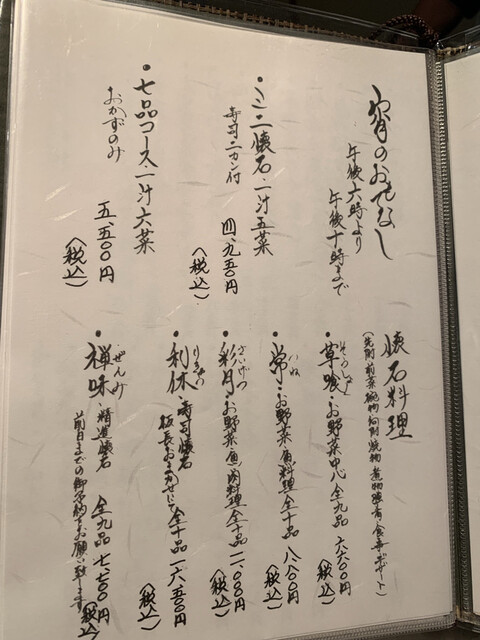 宵のおもてなし
午後六時より
午後十時まで
・ミニ懐石・一汁五菜
寿司二カン付
四、九五〇円
(税込)
・七品コース・一汁六菜
おかずのみ
五、五〇〇円
(税込)
懐石料理
・草喰・お野菜中心 全九品 六六〇〇円
(税込)
お野菜、魚料理 全十品 八八〇〇円
(税込)
さいげつ
・彩月・お野菜、魚、肉料理 全十品 一一、〇〇〇円
(税込)
りきゅう
・利休・寿司懐石
板長おまかせにて 全十品 一六、五〇〇円
(税込)
ぜんみ
・禅味 精進懐石 全九品 七七〇〇円
前日までの御予約をお願い致します
(税込)